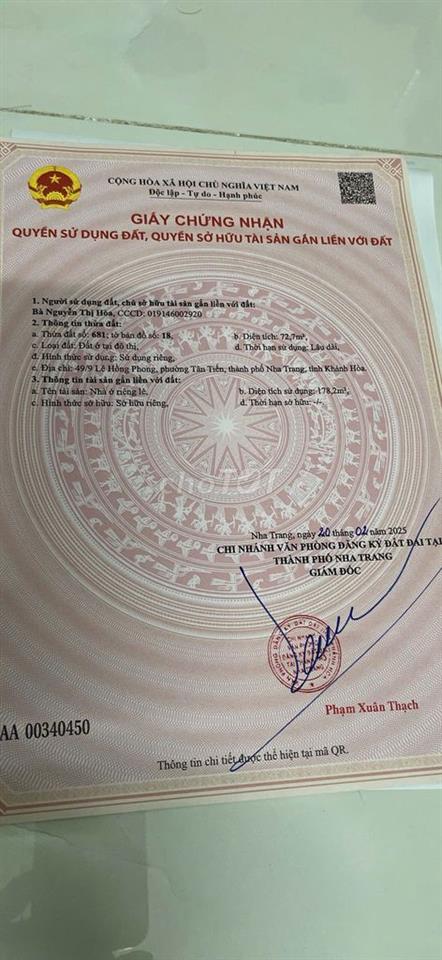 CỘNG HÒA XÃ HỘI CHỦ NGHĨA VIỆT NAM
Độc lập - Tự do - Hạnh phúc
GIẤY CHỨNG NHẬN
QUYỀN SỬ DỤNG ĐẤT, QUYỀN SỞ HỮU TÀI SẢN GẮN LIỀN VỚI ĐẤT
1. Người sử dụng đất, chủ sở hữu tài sản gắn liền với đất:
Bà Nguyễn Thị Hòa, CCCD: 019146002920
2. Thông tin thửa đất:
a. Thửa đất số: 681; tờ bản đồ số: 18, b. Diện tích: 72,7m²,
c. Loại đất: Đất ở tại đô thị, d. Thời hạn sử dụng: Lâu dài,
đ. Hình thức sử dụng: Sử dụng riêng,
e. Địa chỉ: 49/9 Lê Hồng Phong, phường Tân Tiến, thành phố Nha Trang, tỉnh Khánh Hòa.
3. Thông tin tài sản gắn liền với đất:
a. Tên tài sản: Nhà ở riêng lẻ, b. Diện tích sử dụng: 178,2m²,
c. Hình thức sở hữu: Sở hữu riêng, d. Thời hạn sở hữu: -/-.
choTỐT
Nha Trang, ngày 20 tháng 02 năm 2025
CHI NHÁNH VĂN PHÒNG ĐĂNG KÝ ĐẤT ĐAI TẠI
THÀNH PHỐ NHA TRANG
GIÁM ĐỐC
Phạm Xuân Thạch
AA 00340450
Thông tin chi tiết được thể hiện tại mã QR.